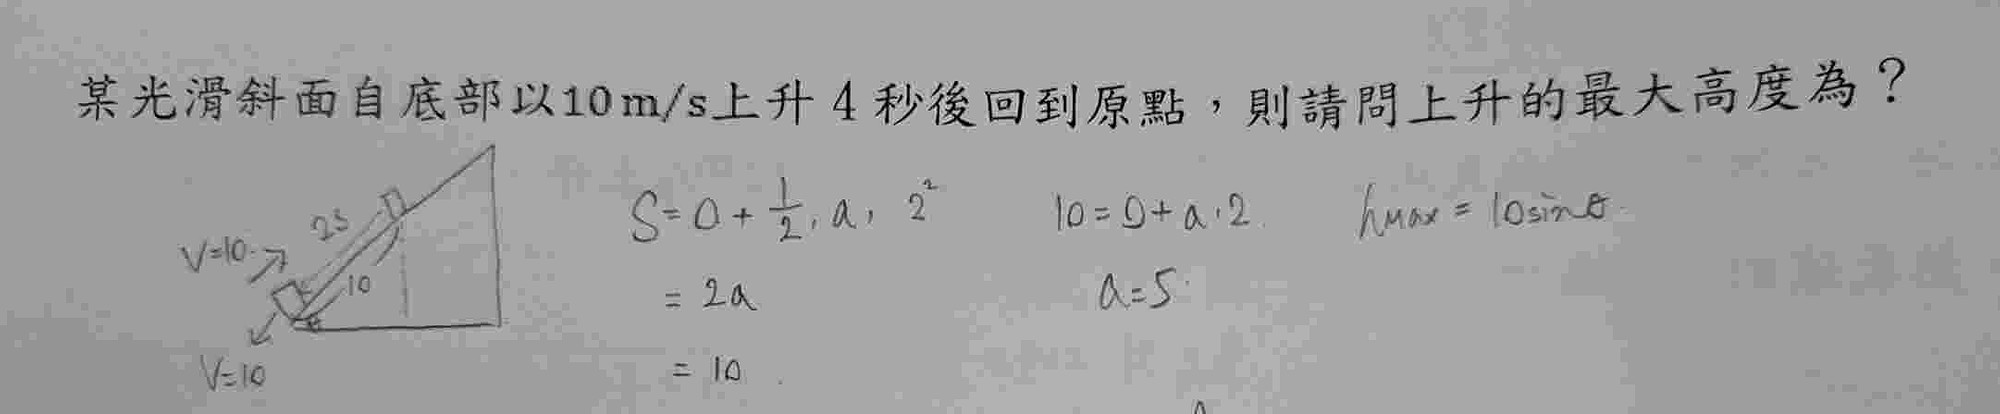 某光滑斜面自底部以10m/s上升4秒後回到原點，則請問上升的最大高度為？
V=10
2s
10
V=10
S=0+\frac{1}{2}·a·2²
=2a
=10
10=0+a·2
a=5
hmax=10sinθ